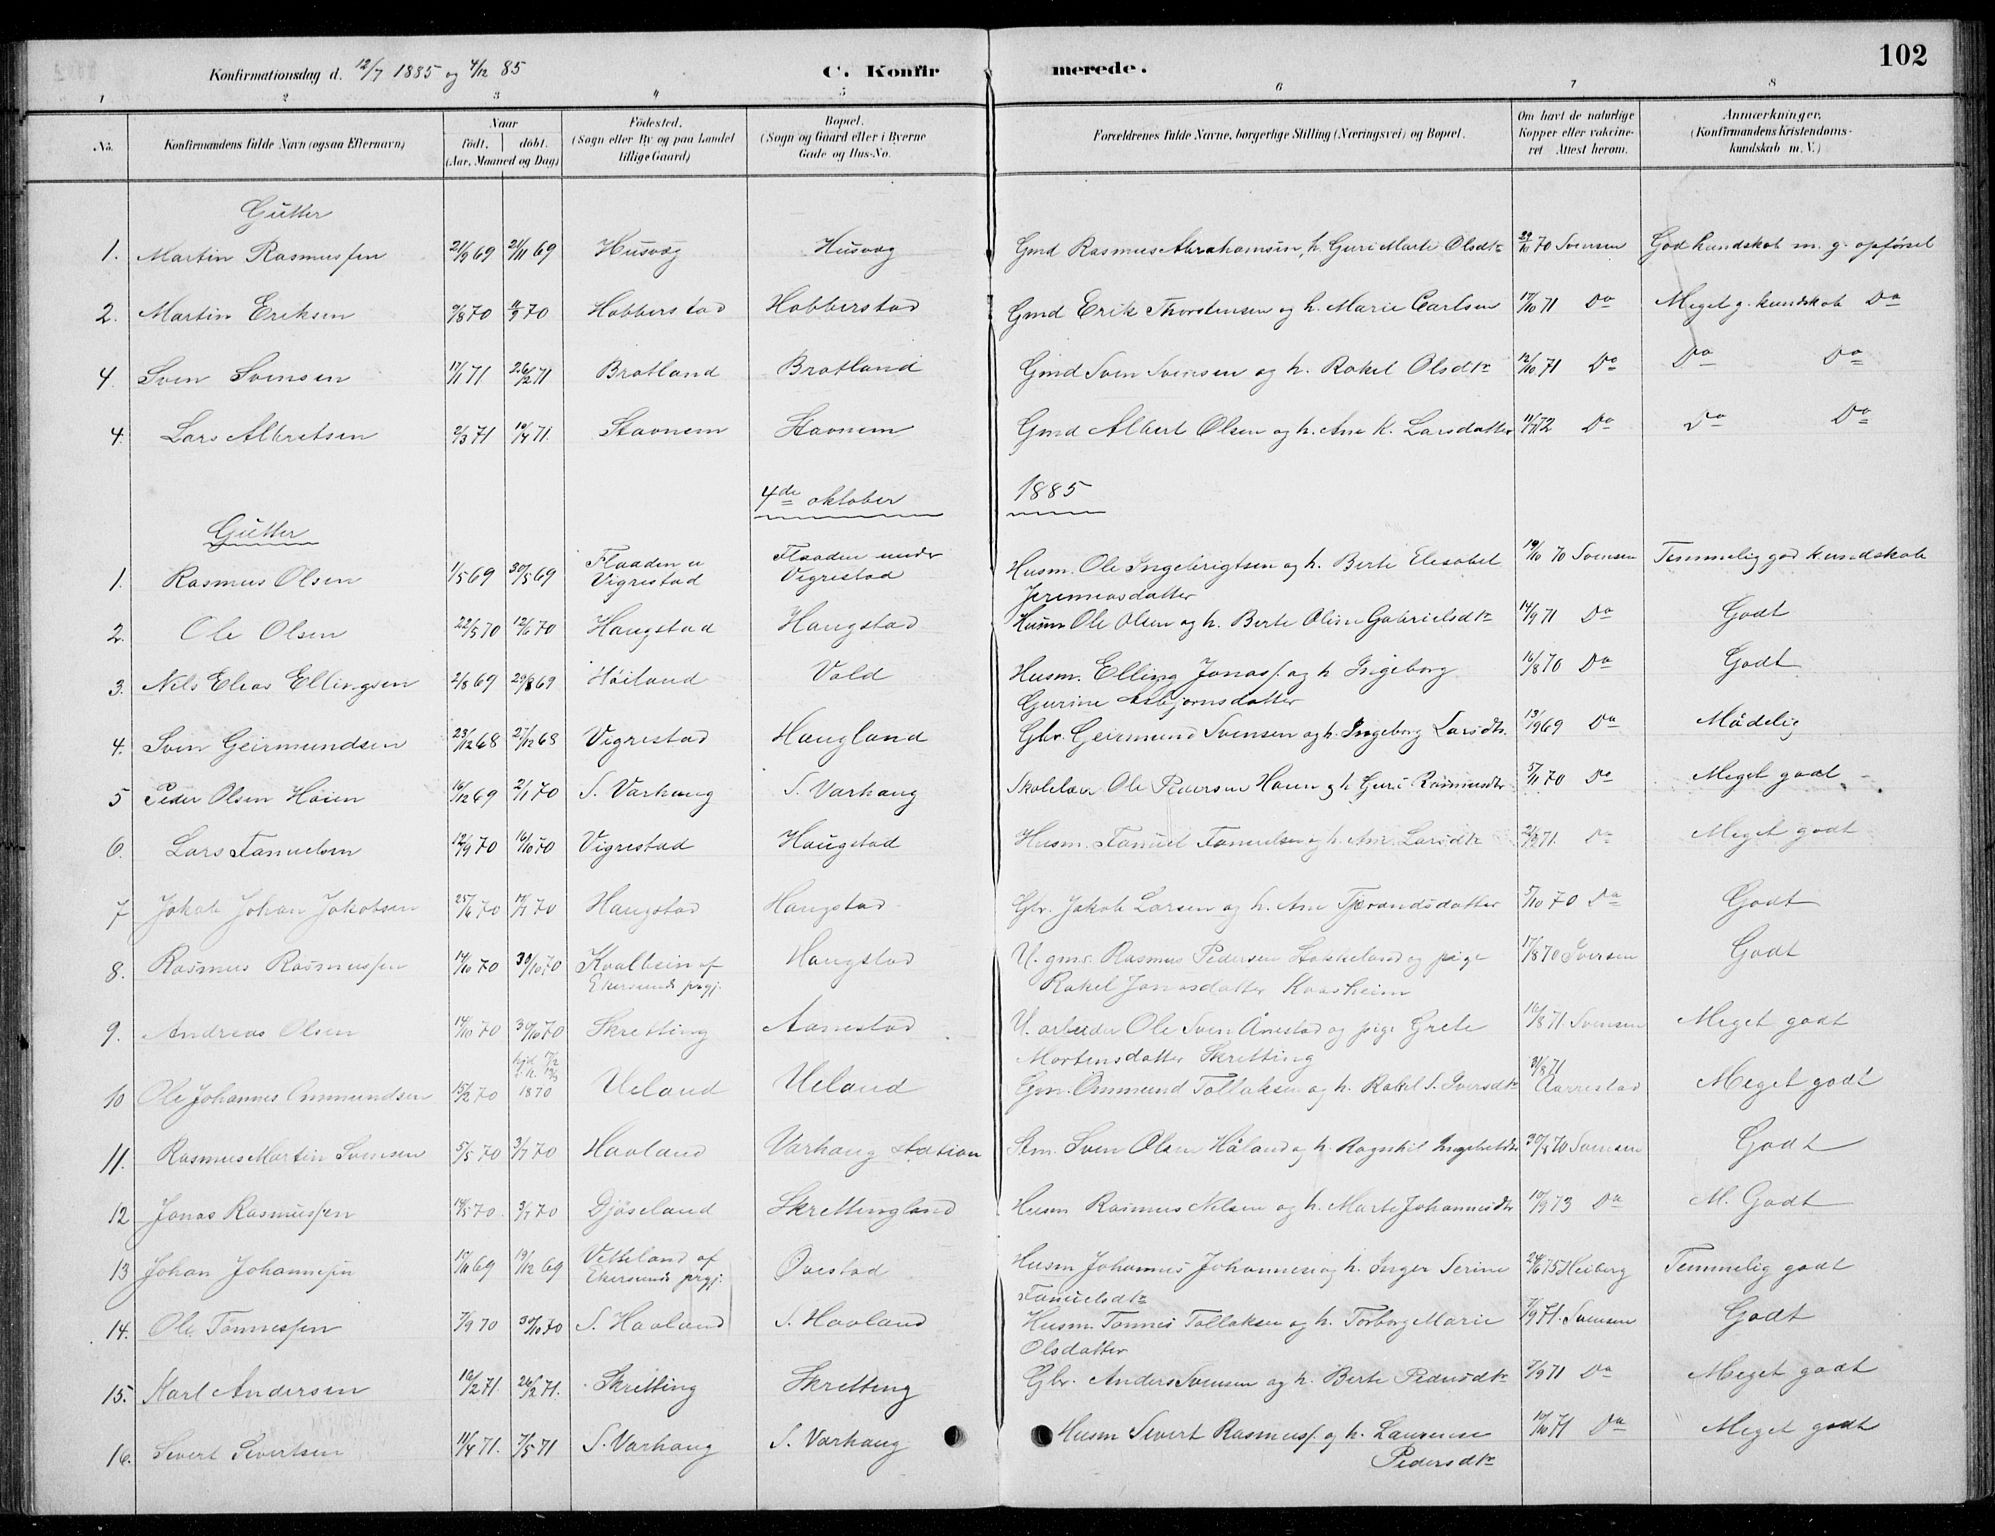 Konfirmationsdag d. 12/7 1885 og 4/12 85 C. Konfirmerede. 102
1 2 3 4 5 6 7 8
No. Konfirmandens fulde Navn (ogsaa Efternavn) Naar født. døbt. (Aar, Maaned og Dag) Fødested. (Sogn eller By og paa Landet tillige Gaard) Bopæl. (Sogn og Gaard eller i Byerne Gade og Hus-No. Forældrenes fulde Navne, borgerlige Stilling (Næringsvei) og Bopæl. Om havt de naturlige Kopper eller vakcineret Attest herom. Anmærkninger. (Konfirmandens Kristendomskundskab m. V.)
Gutter
1. Martin Rasmussen 21/9 69 21/11 69 Husvæg Husvæg Gmd Rasmus Abrahamsen, h. Guri Marte Olsdtr 29/10 70 Svensen God kundskab m. g. opførsel
2. Martin Eriksen 9/8 70 11/9 70 Hobberstad Hobberstad Gmd Erik Thorstensen og h. Marie Carlsen 17/10 71 Do Meget g. kundskab Do
4. Sven Svensen 17/1 71 26/2 71 Bratland Bratland Gmd Sven Svensen og h. Rakel Olsdtr 12/10 71 Do Do Do
4. Lars Albretsen 2/3 71 10/4 71. Stavnem Stavnem Gmd Albert Olsen og h. Ane K. Larsdatter 11/7 72 Do Do Do
4de oktober 1885
Gutter
1. Rasmus Olsen 1/5 69 30/5 69 Flaaden u Vigrestad Flaaden under Vigrestad Husm. Ole Ingebrigtsen og h. Berte Elesabet 19/10 70 Svensen Temmelig god kundskab
Jeremiasdatter
2. Ole Olsen 22/5 70 12/6 70 Haugstad Haugstad Husm Ole Olsen og h. Berte Oline Gabrielsdtr 14/9 71 Do Godt
3. Nils Elias Ellingsen 2/8 69 29/8 69 Høiland Vold Husm. Elling Jonass. og h Ingeborg 16/8 70 Do Godt
Gurine Asbjørnsdatter
4. Sven Geirmundsen 23/12 68 27/12 68 Vigrestad Haugland Gbr. Geirmund Svensen og h. Ingeborg Larsdtr. 13/9 69 Do Mådelig
5 Peder Olsen Høien 16/12 69 2/1 70 S. Varhaug S. Varhaug Skolelær Ole Pedersen Høien og h Guri Rasmusdtr 5/11 70 Do Meget godt
6. Lars Tanuelsen 12/9 70 16/10 70 Vigrestad Haugstad Husm. Tanuel Tanuelsen og h. Ane Larsdtr 21/9 71. Do Meget godt
7 Jakob Johan Jakobsen 25/6 70 17/7 70 Haugstad Haugstad Gbr. Jakob Larsen og h. Ane Tjerandsdatter 5/10 70 Do Godt
8. Rasmus Rasmussen 14/10 70 30/10 70 Kvalbein af Ekersunds prgj. Haugstad U. gmr. Rasmus Pedersen Stokkeland og pige 17/8 70 Svensen Godt
Rakel Jonasdatter Kaasheim
9. Andreas Olsen 14/10 70 30/10 70 Skretting Aanestad U. arbeider Ole Sven Ånestad og pige Grete 16/8 71 Svensen Meget godt
Mortensdatter Skretting
10 Ole Johannes Ommundsen 15/2 70 1870 Ueland Ueland Gm. Ommund Tollaksen og h. Rakel S. Iversdtr 31/8 71 Aarrestad Meget godt
11. Rasmus Martin Svensen 5/5 70 3/7 70 Haaland Varhaug Station Stm. Sven Olsen Håland og h. Ragnhil Ingebretsdtr 30/8 70 Svensen Godt
12 Jonas Rasmussen 14/5 70. 3/7 70 Djøseland Skrettingland Husm Rasmus Nilsen og h. Marte Johannesdtr 10/9 73 Do M. Godt
13 Johan Johannesen 17/11 69 19/12 69 Vetteland af Ekersunds prgj. Ovestad Husm Johannes Johannesen og h. Inger Serine 24/6 75 Heiberg Temmelig godt
Tanuelsdtr
14. Ole Tønnessen 7/9 70 30/10 70 S. Haaland S. Haaland Husm. Tønnes Tollaksen og h. Torborg Marie 7/9 71. Svensen Godt
Olsdatter
15. Karl Andersen 10/2 71. 26/2 71. Skretting Skretting Gbr. Anders Svensen og h. Berte Pedersdtr 7/9 71 Do Meget godt
16. Sivert Sivertsen 11/4 71. 7/5 71 S. Varhaug S. Varhaug Husm Sivert Rasmuss. og h. Laurense 10/10 71 Do Meget godt
Pedersdtr